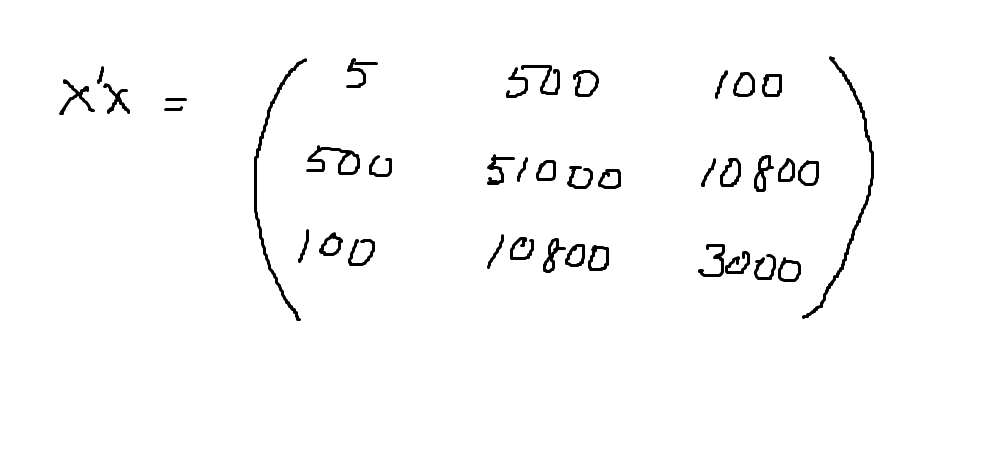 X'X = ( 5 500 100
500 51000 10800
100 10800 3000 )